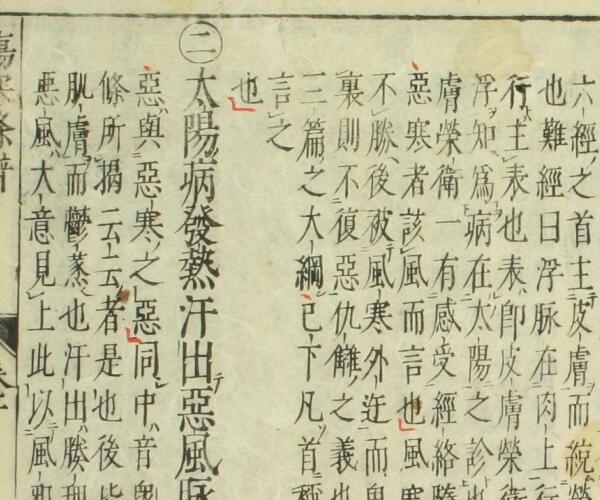 六經之首主皮膚而統榮
也難經曰浮脉在肉上行
行主表也表即皮膚榮衛
浮知爲病在太陽之診也
膚榮衛一有感受經絡隨
惡寒者該風而言也風寒
不勝後被風寒外迕而畏
裏則不復惡仇讎之義也
三篇之大綱已下凡首稱
言之
也
㊁太陽病發熱汗出惡風脉
惡與惡寒之惡同中音與
條所揭云云者是也後皆
肌膚而鬱蒸也汗出腠理
惡風大意見上此以風
傷寒條辨